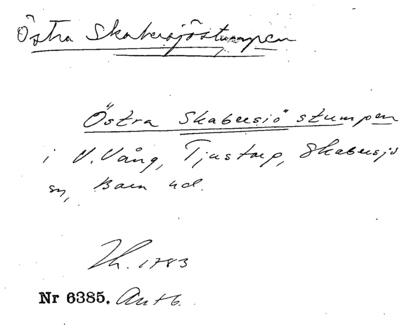 Östra Skabersjöstumpen
Östra Skabersjö stumpen
i V. Vång, Tjustorp, Skabersjö
sn, Bara hd.
1783
Nr 6385. Antb.